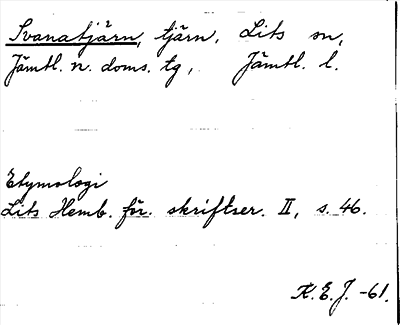 Svanatjärn, tjärn, Lits sn,
Jämtl. n. doms. tg, Jämtl. l.
Etymologi
Lits Hemb. för. skriftser. II, s. 46.
K. E. J. -61.